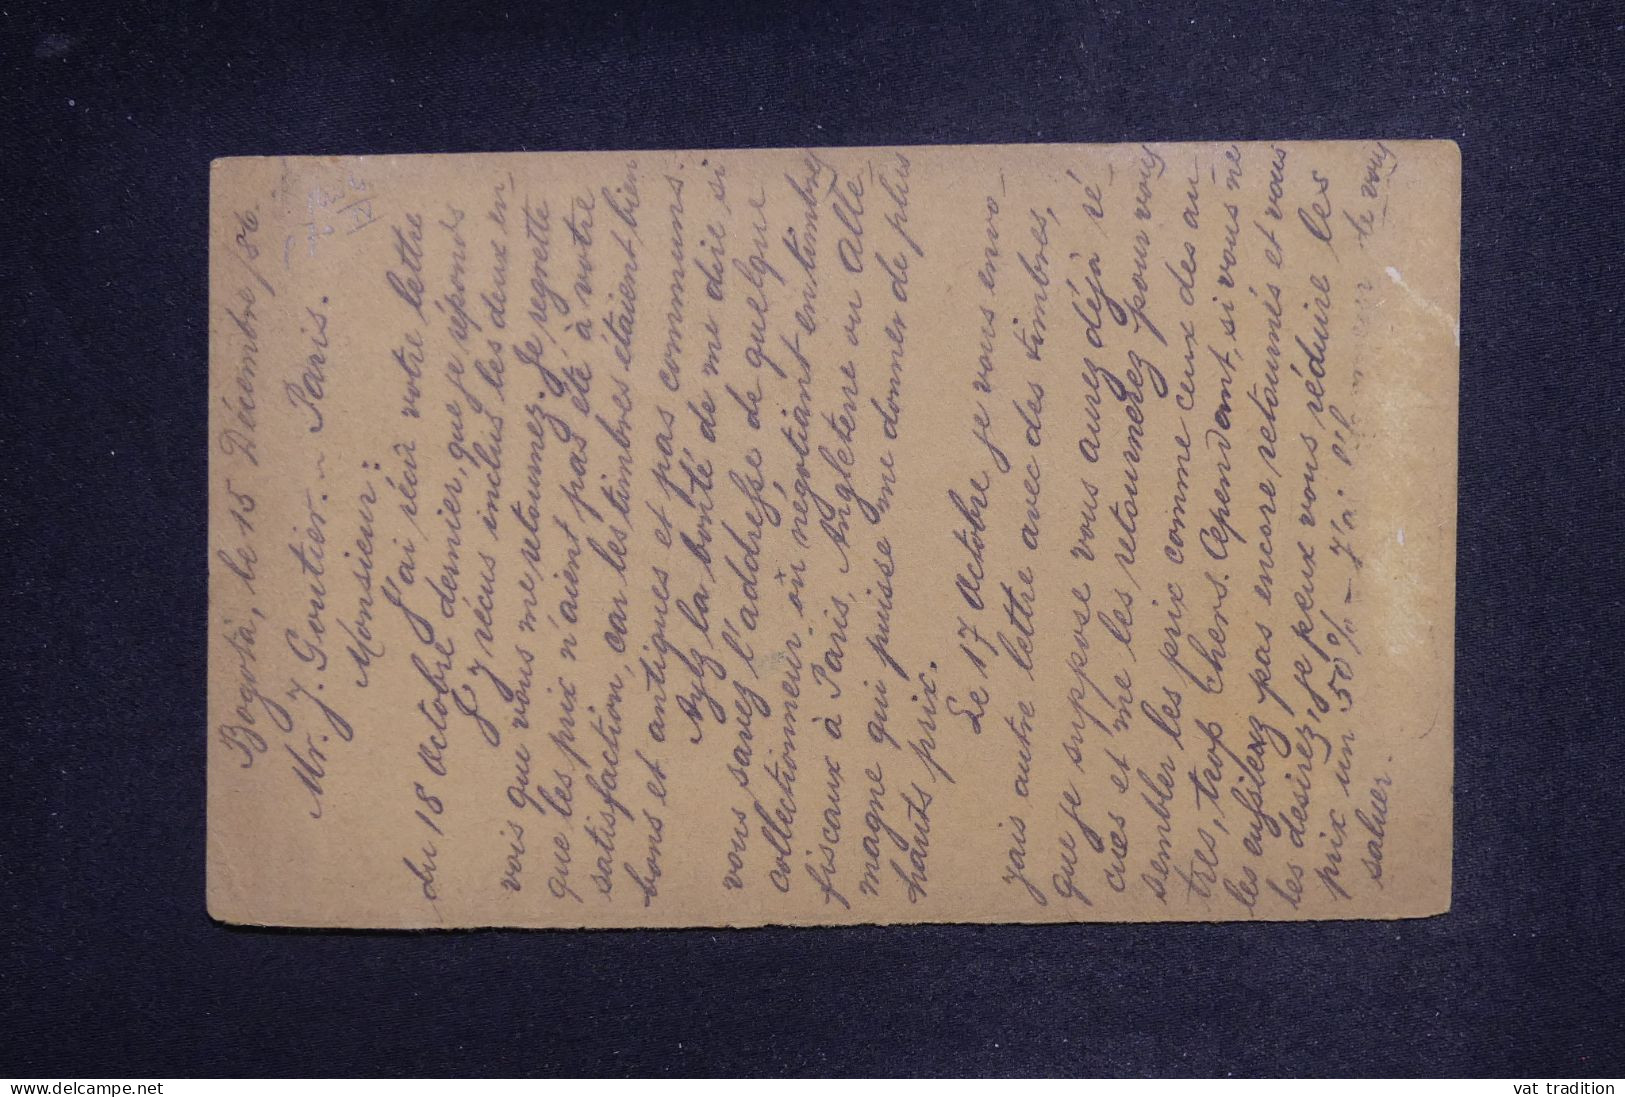 Bogotá, le 15 Décembre/86.
Mr. J. Goutier. - Paris.
Monsieur:
J'ai récu votre lettre
du 18 Octobre dernier, que je réponds
J'y récus inclus les deux en-
vois que vous me retournez. Je regrette
que les prix n'aient pas été à votre
satisfaction, car les timbres étaient bien
bons et antiques et pas communs.
Ayez la bonté de me dire si
vous savez l'addresse de quelque
collectionneur ou negotiant en timbres
fiscaux à Paris, Angleterre ou Alle-
magne qui puisse me donner de plus
hauts prix.
Le 17 Octobre je vous envo-
yais autre lettre avec des timbres,
que je suppose vous aurez déjà ré-
cues et me les retournerez pour vous
sembler les prix comme ceux des au-
tres, trop chers. Cependant, si vous ne
les eussiez pas encore retournés et vous
les desirez, je peux vous réduire les
prix un 50% - J'ai l'h de vous
saluer.
vat tradition
www.delcampe.net